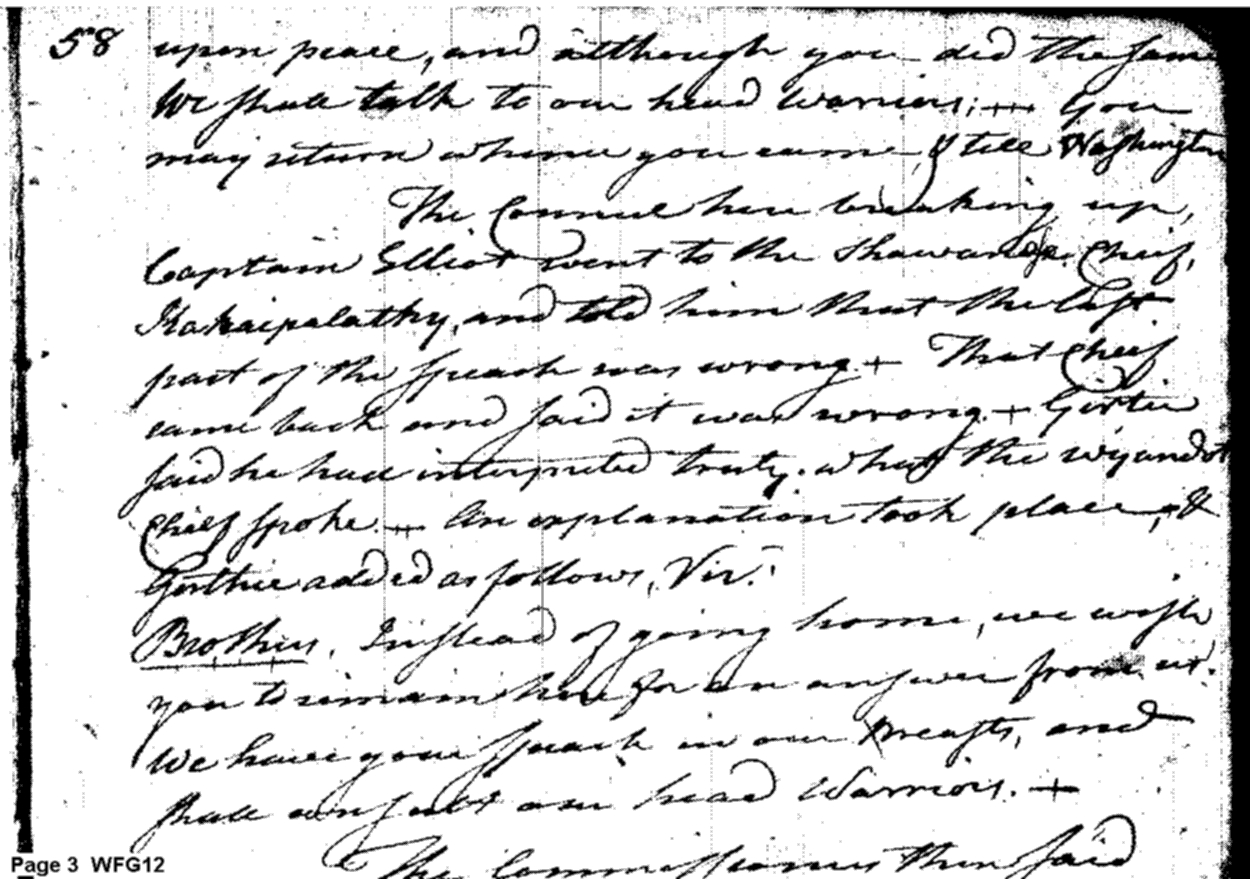 58 upon peace, and although you did the same
We shall talk to our head warriors; + You
may return whence you came & tell Washington
The Council here breaking up,
Captain Elliot went to the Shawanoe Chief,
Kakaipalathy, and told him that the last
part of the Speach was wrong. + That Chief
came back and said it was wrong. + Girtie
said he had interpreted truly. what the Wyandot
Chief spoke. + An explanation took place, &
Girthie added as follows, Viz.:
Brothers, Instead of going home, we wish
you to remain here for an answer from us.
We have your speach in our Breasts, and
shall consult our head Warriors. +
The Commissioners then said
Page 3 WFG12